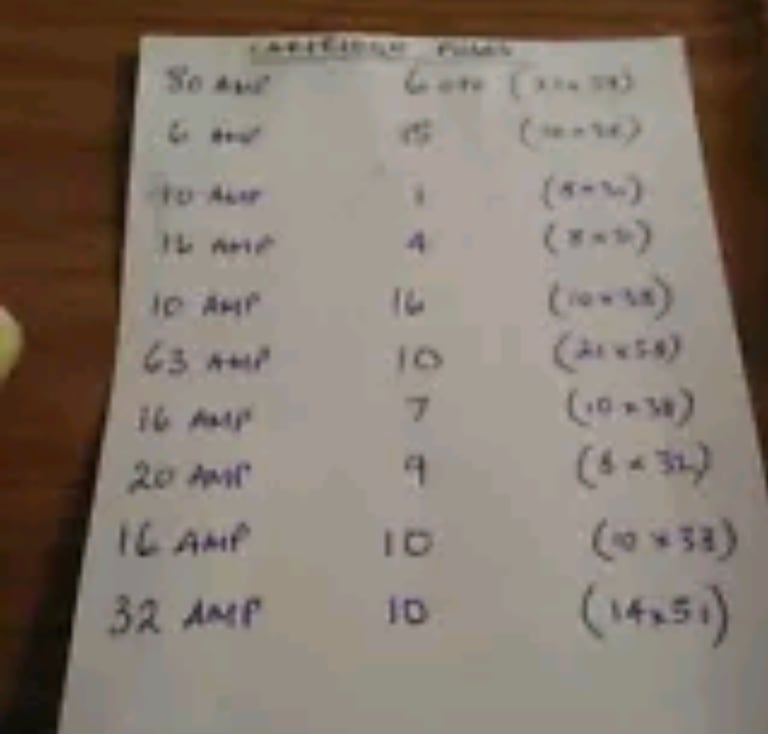 CARTRIDGE FUSES
80 AMP 6 (22x58)
6 AMP 15 (10x38)
10 AMP 1 (8x32)
16 AMP 4 (8x31)
10 AMP 16 (10x38)
63 AMP 10 (22x58)
16 AMP 7 (10x38)
20 AMP 9 (8x32)
16 AMP 10 (10x38)
32 AMP 10 (14x51)